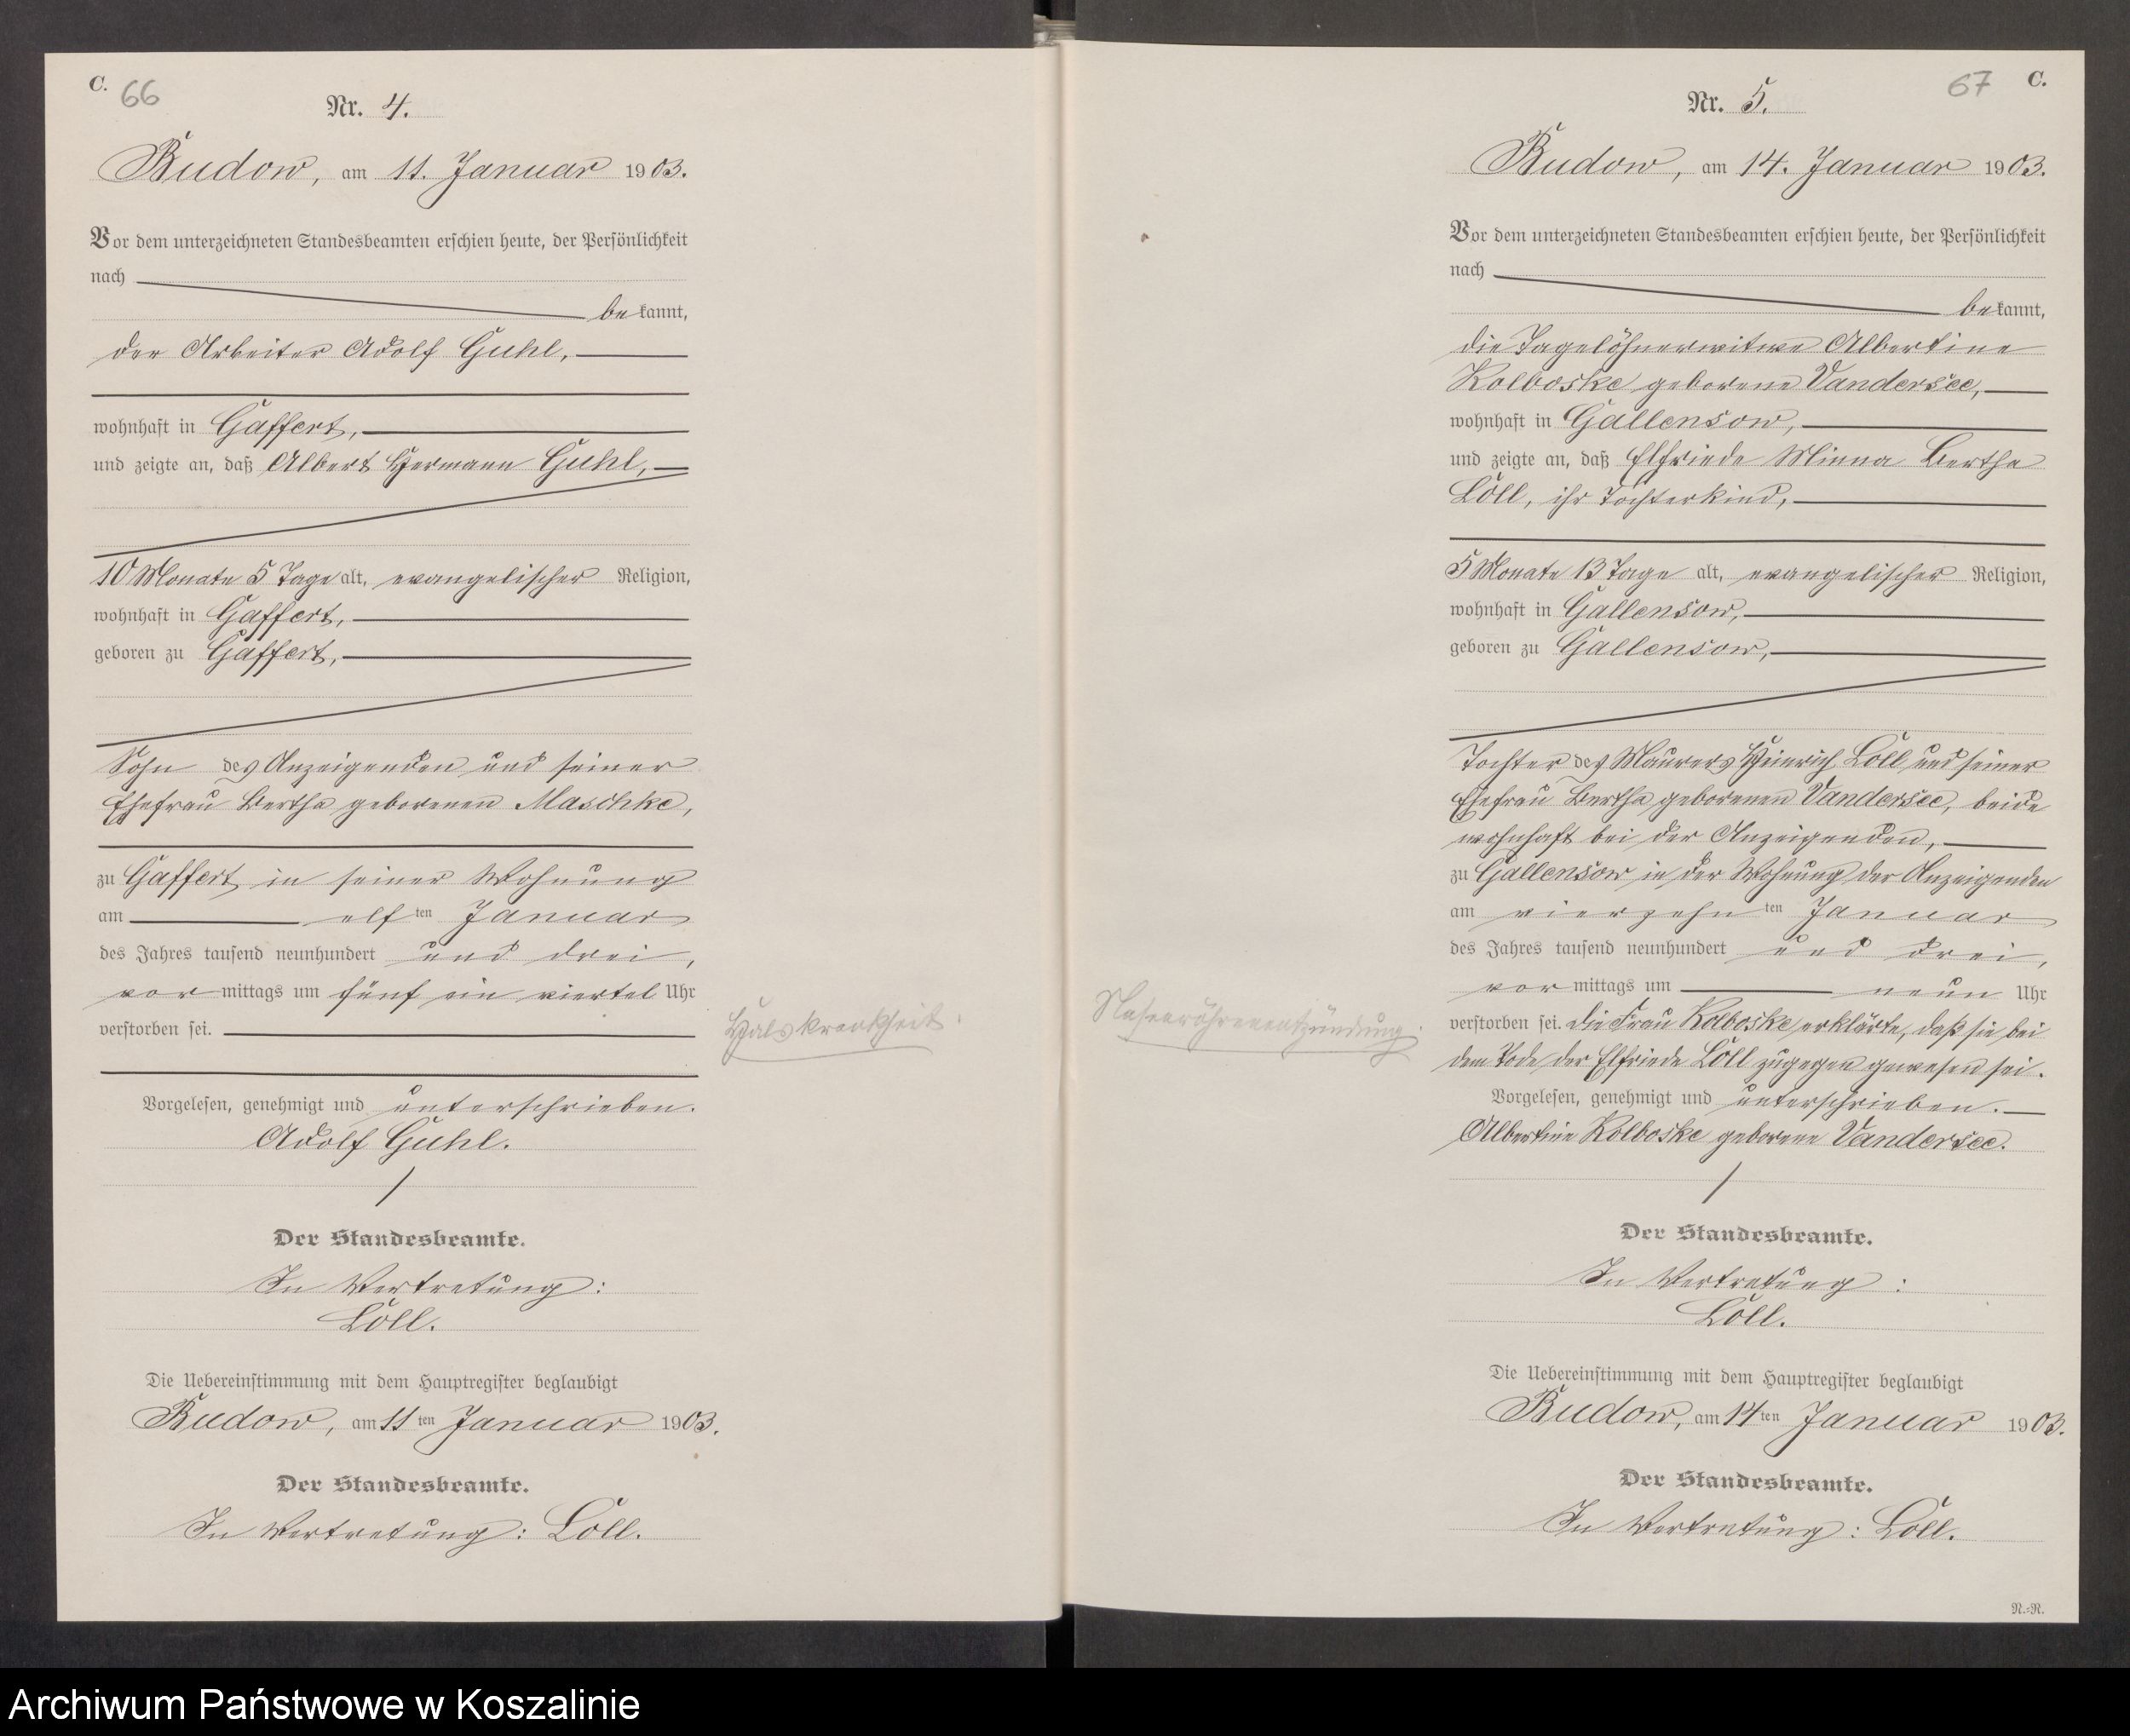 C. 66
Nr. 4.
Budow, am 11. Januar 1903.
Vor dem unterzeichneten Standesbeamten erschien heute, der Persönlichkeit
nach
bekannt,
der Arbeiter Adolf Guhl,
wohnhaft in Gaffert,
und zeigte an, daß Albert Hermann Guhl,
10 Monate 5 Tage alt, evangelischer Religion,
wohnhaft in Gaffert,
geboren zu Gaffert,
Sohn des Anzeigenden und seiner
Ehefrau Bertha geborenen Maschke,
zu Gaffert in seiner Wohnung
am elften Januar
des Jahres tausend neunhundert und drei,
vormittags um fünf ein viertel Uhr
verstorben sei.
Halskrankheit.
Vorgelesen, genehmigt und unterschrieben.
Adolf Guhl.
Der Standesbeamte.
In Vertretung:
Löll.
Die Uebereinstimmung mit dem Hauptregister beglaubigt
Budow, am 11ten Januar 1903.
Der Standesbeamte.
In Vertretung: Löll.
67 C.
Nr. 5.
Budow, am 14. Januar 1903.
Vor dem unterzeichneten Standesbeamten erschien heute, der Persönlichkeit
nach
bekannt,
die Tagelöhnerwitwe Albertine
Kolboske geborene Vandersee,
wohnhaft in Gallensow,
und zeigte an, daß Elfriede Minna Bertha
Löll, ihr Tochterkind,
5 Monate 13 Tage alt, evangelischer Religion,
wohnhaft in Gallensow,
geboren zu Gallensow,
Tochter des Maurers Heinrich Löll und seiner
Ehefrau Bertha geborenen Vandersee, beide
wohnhaft bei der Anzeigenden,
zu Gallensow in der Wohnung der Anzeigenden
am vierzehnten Januar
des Jahres tausend neunhundert und drei,
vormittags um neun Uhr
verstorben sei. Die Frau Kolboske erklärte, daß sie bei
dem Tode der Elfriede Löll zugegen gewesen sei.
Vorgelesen, genehmigt und unterschrieben.
Albertine Kolboske geborene Vandersee.
Der Standesbeamte.
In Vertretung:
Löll.
Die Uebereinstimmung mit dem Hauptregister beglaubigt
Budow, am 14ten Januar 1903.
Der Standesbeamte.
In Vertretung: Löll.
N.=N.
Archiwum Państwowe w Koszalinie